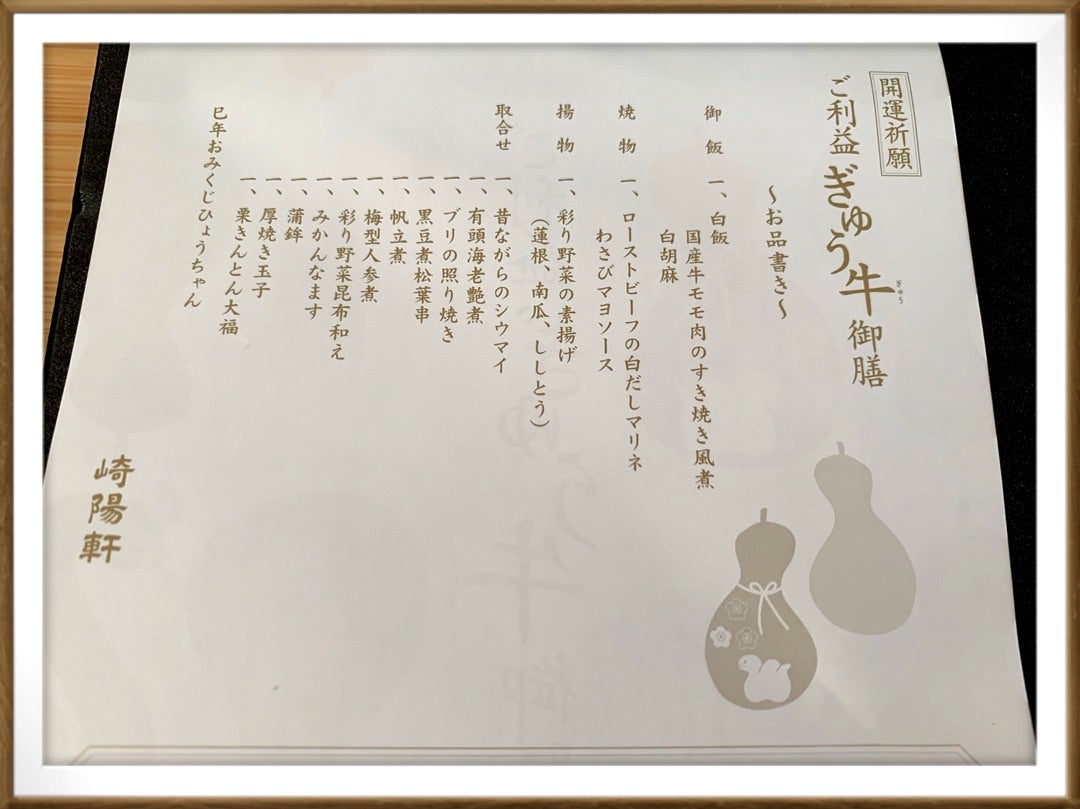 開運祈願
ご利益ぎゅう牛御膳
ぎゅう
～お品書き～
御飯 一、白飯
国産牛モモ肉のすき焼き風煮
白胡麻
焼物 一、ローストビーフの白だしマリネ
わさびマヨソース
揚物 一、彩り野菜の素揚げ
（蓮根、南瓜、ししとう）
取合せ 一、昔ながらのシウマイ
一、有頭海老艶煮
一、ブリの照り焼き
一、黒豆煮松葉串
一、帆立煮
一、梅型人参煮
一、彩り野菜昆布和え
一、みかんなます
一、蒲鉾
一、厚焼き玉子
一、栗きんとん大福
巳年おみくじひょうちゃん
崎陽軒